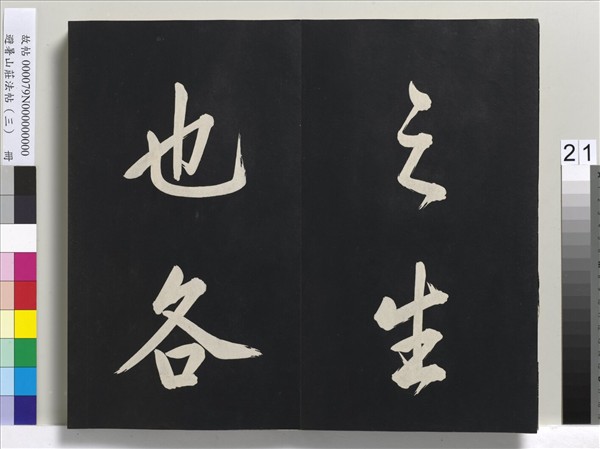 之生
也各
故帖 000079N000000000
避暑山莊法帖（三） 冊
21